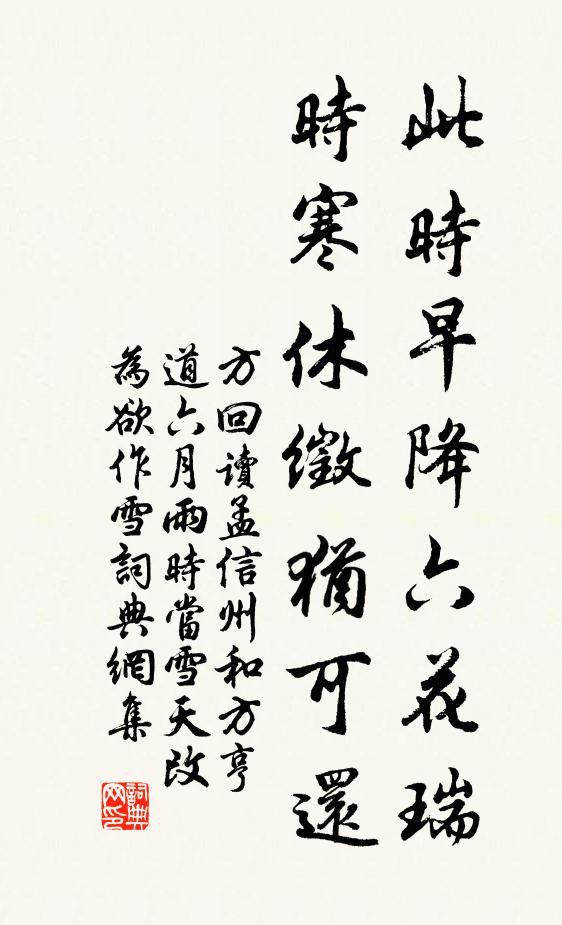 此時早降六花瑞
時寒休徵猶可還
方回讀孟信州和方亨
道六月雨時當雪天改
為欲作雪詞典網集
詞典网印